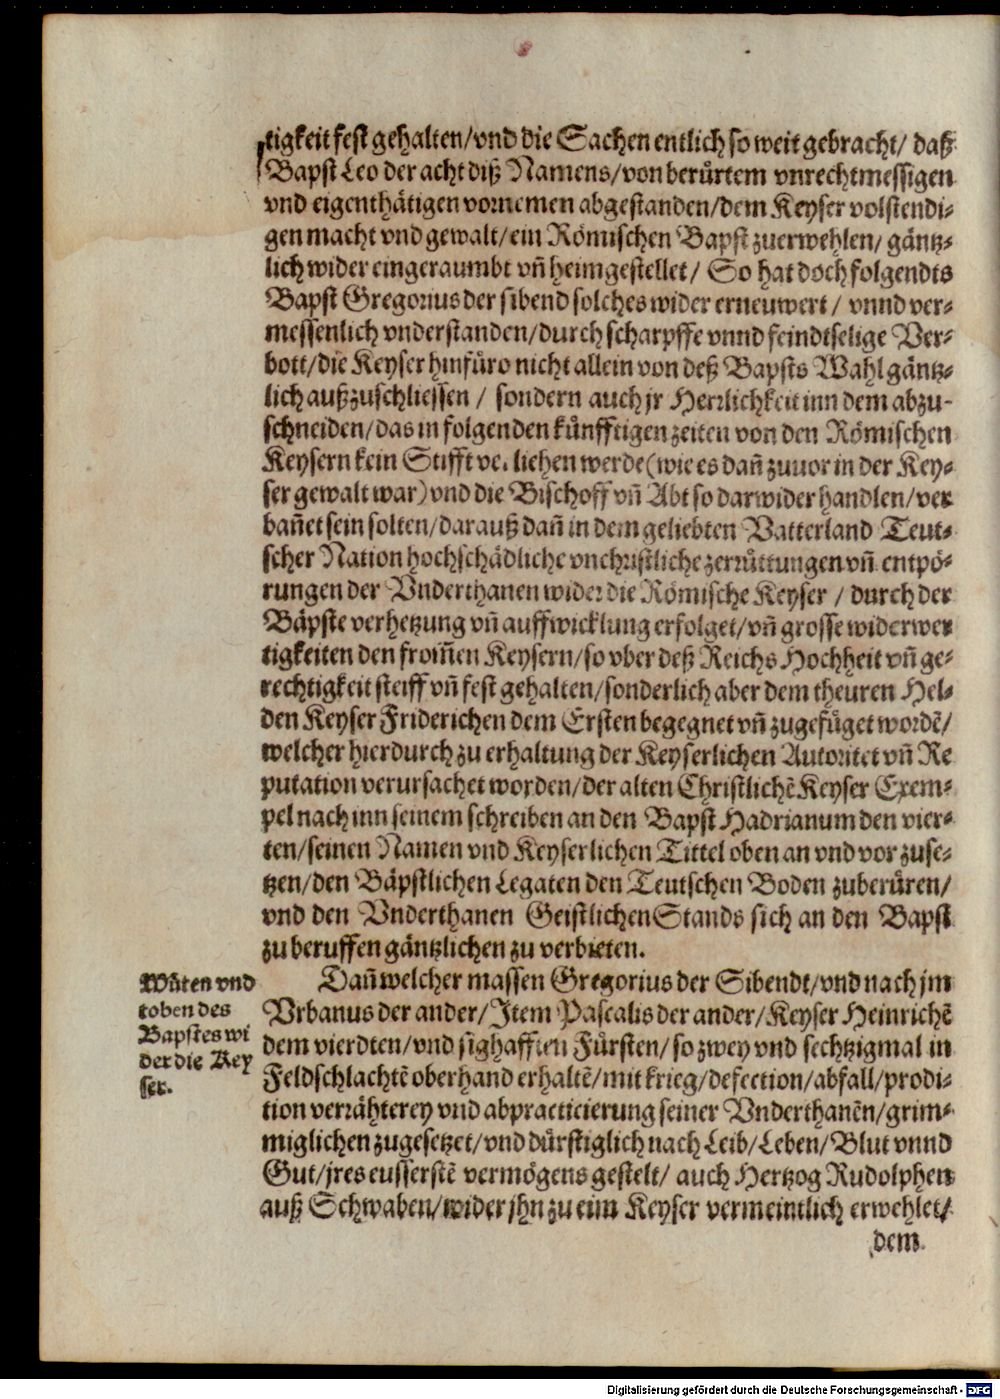 tigkeit fest gehalten/vnd die Sachen entlich so weit gebracht/ daß
Bapst Leo der acht diß Namens/von berůrtem vnrechtmessigen
vnd eigenthätigen vornemen abgestanden/dem Keyser volstendi-
gen macht vnd gewalt/ein Römischen Bapst zuerwehlen/ gäntz-
lich wider eingeraumbt vñ heimgestellet/ So hat doch folgendts
Bapst Gregorius der sibend solches wider erneuwert / vnnd ver-
messenlich vnderstanden/durch scharpffe vnnd feindtselige Ver-
bott/die Keyser hinfůro nicht allein von deß Bapsts Wahl gäntz-
lich außzuschliessen / sondern auch jr Herrlichkeit inn dem abzu-
schneiden/das in folgenden kůnfftigen zeiten von den Römischen
Keysern kein Stifft verliehen werde (wie es dañ zuuor in der Key-
ser gewalt war) vnd die Bischoff vñ Abt so darwider handlen/ver
bañet sein solten/darauß dañ in dem geliebten Vatterland Teut-
scher Nation hochschädliche vnchristliche zerrůttungen vñ entpö-
rungen der Vnderthanen wider die Römische Keyser / durch der
Bäpste verhetzung vñ auffwicklung erfolget/vñ grosse widerwer
tigkeiten den from̃en Keysern/so vber deß Reichs Hochheit vñ ge-
rechtigkeit steiff vñ fest gehalten/sonderlich aber dem theuren Hel-
den Keyser Friderichen dem Ersten begegnet vñ zugefůget wordẽ/
welcher hierdurch zu erhaltung der Keyserlichen Autoritet vñ Re
putation verursachet worden/der alten Christlichẽ Keyser Exem-
pel nach inn seinem schreiben an den Bapst Hadrianum den vier-
ten/seinen Namen vnd Keyserlichen Tittel oben an vnd vor zuse-
tzen/den Bäpstlichen Legaten den Teutschen Boden zuberůren/
vnd den Vnderthanen Geistlichen Stands sich an den Bapst
zu beruffen gäntzlichen zu verbieten.
Dañ welcher massen Gregorius der Sibendt/vnd nach jm
Vrbanus der ander/Item Pascalis der ander/Keyser Heinrichẽ
dem vierdten/vnd sighafften Fürsten/so zwey vnd sechtzigmal in
Feldschlachtẽ oberhand erhaltẽ/mit krieg/defection/abfall/prodi-
tion verrähterey vnd abpracticierung seiner Vnderthanẽn/grim-
miglichen zugesetzet/vnd dürstiglich nach Leib/Leben/Blut vnnd
Gut/jres eusserstẽ vermögens gestelt/ auch Hertzog Rudolphen
auß Schwaben/wider jhn zu eim Keyser vermeintlich erwehlet/
dem
Wůten vnd
toben des
Bapstes wi
der die Key
ser.
Digitalisierung gefördert durch die Deutsche Forschungsgemeinschaft - DFG